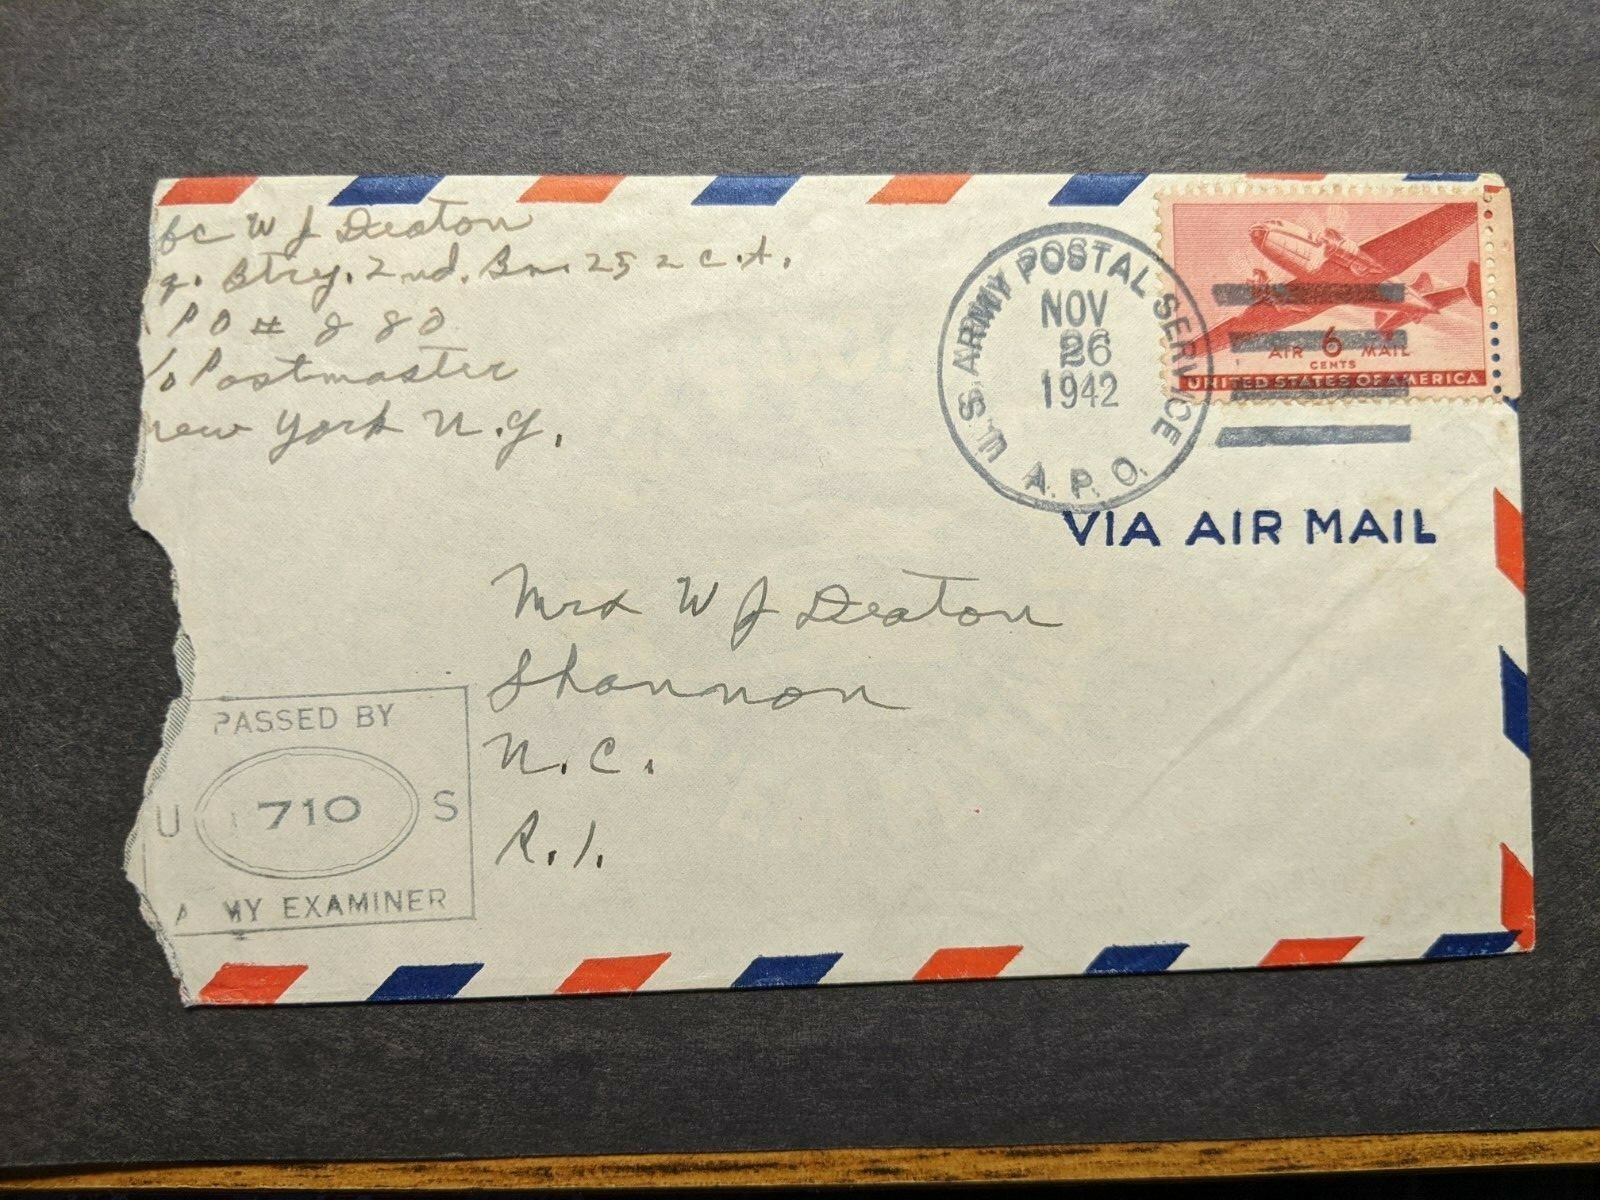 fc W J Deaton
q. Btry. 2nd. Bn. 252 C.A.
PO # 880
/o Postmaster
New York N.Y.
U.S. ARMY POSTAL SERVICE
NOV
26
1942
A.P.O.
AIR 6 MAIL
CENTS
UNITED STATES OF AMERICA
VIA AIR MAIL
Mrs W J Deaton
Shannon
N.C.
R.1.
PASSED BY
U 710 S
A MY EXAMINER